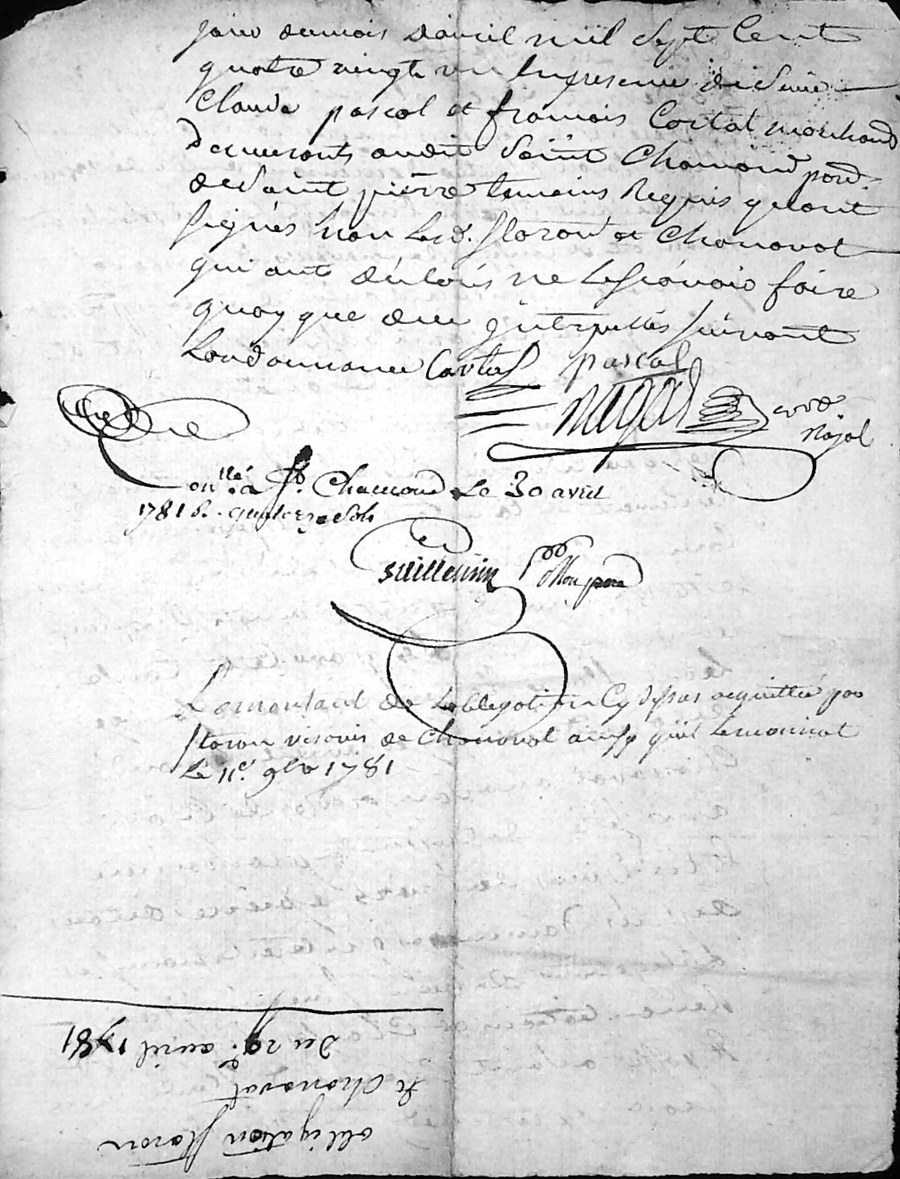 jour du mois d'avril mil sept Cent
quatre vingt un En presence de Sieur
Claude pascal et francois Cortal marchand
demeurants audit Saint Chamond paroisse
de Saint pierre temoins Requis qui ont
signés non Lesd. floron et Chanavat
qui ont déclarés ne Le sçavoir faire
quoy que de ce interpellés suivant
Lordonnance Cortal pascal
nayal
Con.lle à St. Chamond Le 30 avril
1781 R. quinze sols
Guillemin
Le montant de Lobligation Cy dessus acquittée par
floron visavis de Chanavat ainsy quil Lemontrat
Le 11e. 9bre 1781
obligation floron
Chanavat
Du 29e. avril 1781